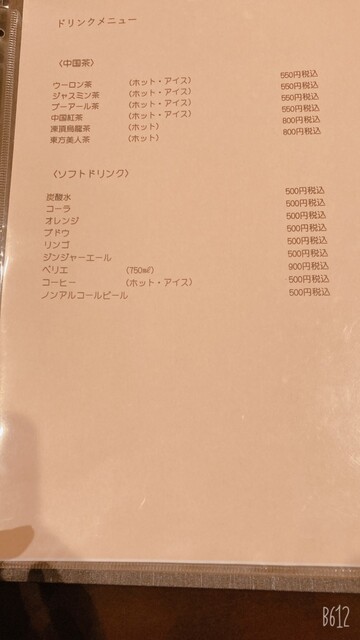 ドリンクメニュー
〈中国茶〉
ウーロン茶 (ホット・アイス) 550円税込
ジャスミン茶 (ホット・アイス) 550円税込
プーアール茶 (ホット・アイス) 550円税込
中国紅茶 (ホット・アイス) 550円税込
凍頂烏龍茶 (ホット) 800円税込
東方美人茶 (ホット) 800円税込
〈ソフトドリンク〉
炭酸水 500円税込
コーラ 500円税込
オレンジ 500円税込
ブドウ 500円税込
リンゴ 500円税込
ジンジャーエール 500円税込
ペリエ (750㎖) 900円税込
コーヒー (ホット・アイス) 500円税込
ノンアルコールビール 500円税込
B612